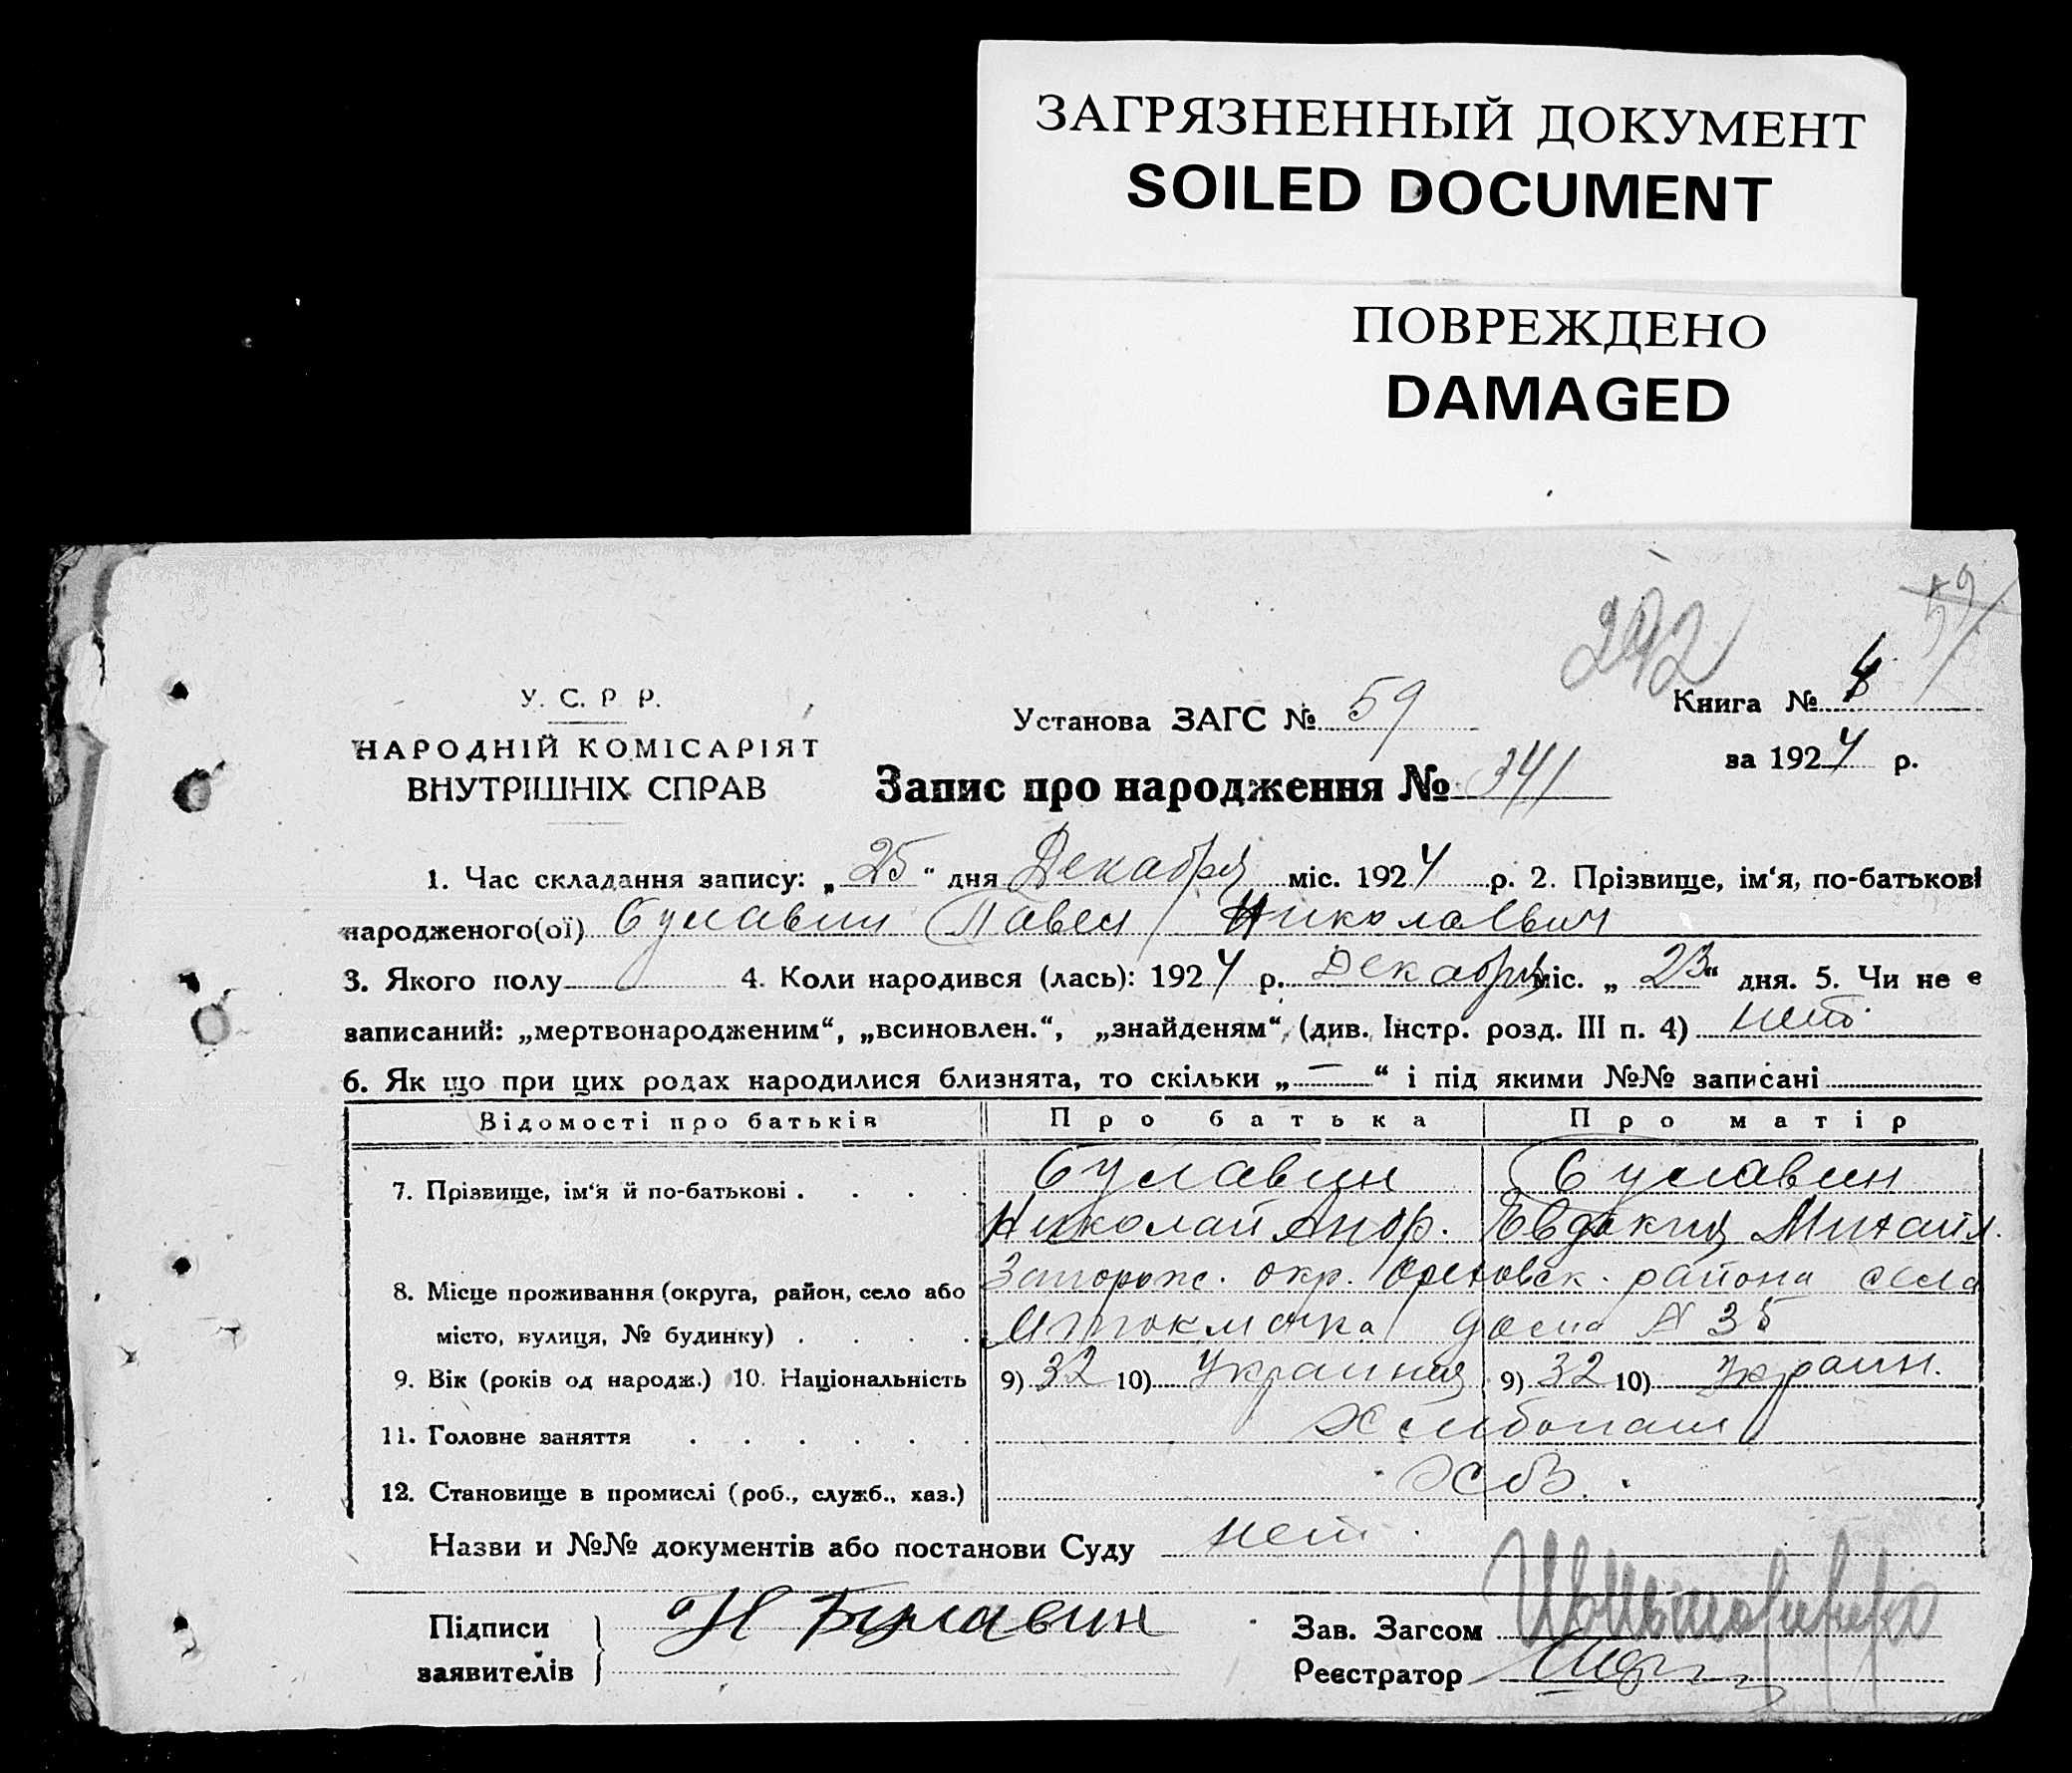 ЗАГРЯЗНЕННЫЙ ДОКУМЕНТ
SOILED DOCUMENT
ПОВРЕЖДЕНО
DAMAGED
59
292
У. С. Р Р.
Установа ЗАГС № 59
Книга № 4
НАРОДНІЙ КОМІСАРІЯТ
ВНУТРІШНІХ СПРАВ
за 1924 р.
Запис про народження № 341
1. Час складання запису: „25“ дня Декабря міс. 1924 р. 2. Прізвище, ім‘я, по-батькові
народженого(ої) Булавин Павел Николаевич
3. Якого полу 4. Коли народився (лась): 1924 р. Декабря міс. „23“ дня. 5. Чи не є
записаний: „мертвонародженим“, „всиновлен.“, „знайденям“ (див. Інстр. розд. III п. 4) нет
6. Як що при цих родах народилися близнята, то скільки „—“ і під якими №№ записані
Відомості про батьків Про батька Про матір
7. Прізвище, ім‘я й по-батькові . . . . Булавин Булавин
Николай Андр. Евдокия Михайл.
8. Місце проживання (округа, район, село або Запорож. окр. Ореховск. района села
місто, вулиця, № будинку) . . . . дома № 35
9. Вік (років од народж.) 10. Національність 9) 32 10) Украинец 9) 32 10) Украин.
11. Головне заняття . . . . . . Хлебопаш
12. Становище в промислі (роб., служб., хаз.) Хоз.
Назви и №№ документів або постанови Суду нет
Підписи
заявителів
Н Булавин
Зав. Загсом
Реєстратор